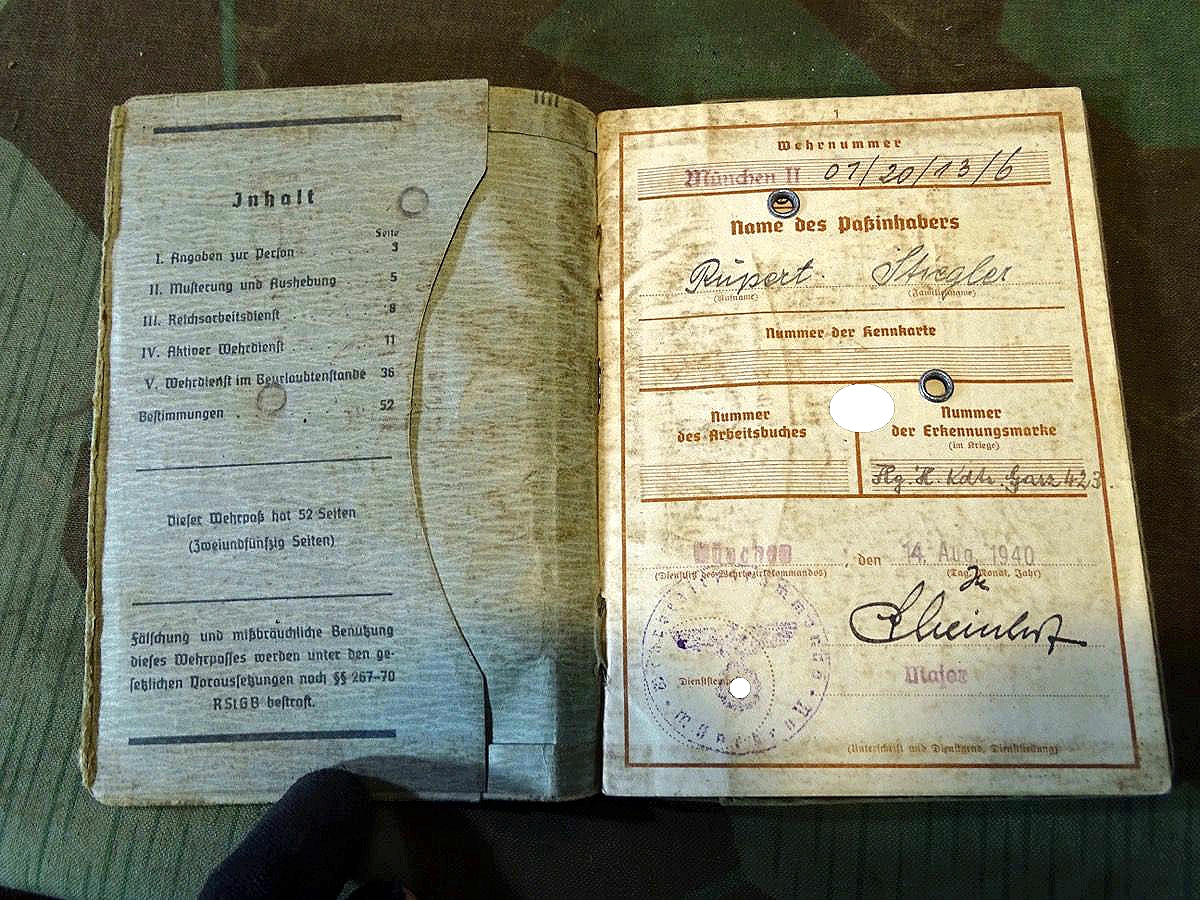 Inhalt
Seite
I. Angaben zur Person . . . 3
II. Musterung und Aushebung . 5
III. Reichsarbeitsdienst . . . 8
IV. Aktiver Wehrdienst . . . 11
V. Wehrdienst im Beurlaubtenstande 36
Bestimmungen . . . 52
Dieser Wehrpaß hat 52 Seiten
(Zweiundfünfzig Seiten)
Fälschung und mißbräuchliche Benützung
dieses Wehrpasses werden unter den ge-
setzlichen Voraussetzungen nach §§ 267-70
RStGB bestraft.
1
Wehrnummer
München II 07/20/13/6
Name des Paßinhabers
Rupert Stiegler
(Vorname) (Familienname)
Nummer der Kennkarte
Nummer
des Arbeitsbuches
Nummer
der Erkennungsmarke
(im Kriege)
Flg. H. Kdtr. Garz 423
München, den 14. Aug. 1940
(Dienstsitz des Wehrbezirkskommandos) (Tag, Monat, Jahr)
Major
(Unterschrift und Dienstgrad, Dienststellung)